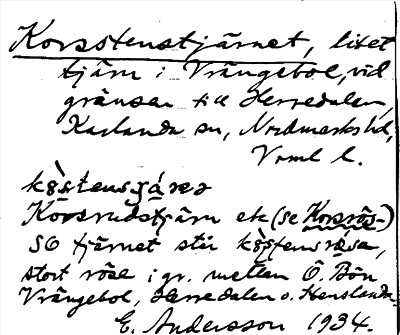 Korsstenstjärnet, litet
tjärn i Vrängebol, vid
gränsen till Herredalen,
Karlanda sn, Nordmarks hd,
Vrml l.
Korsrudstjärn ek (se Korsrös-)
SO tjärnet står
stort röse i gr. mellan Ö. Bön
Vrängebol, Herredalen o.
E. Andersson 1934.